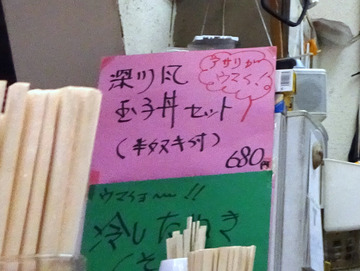 アサリが
ウマイ!
深川に
玉子丼セット
(半タヌキ付)
680円
ウマイヨ〜!!
冷したぬき
(そ